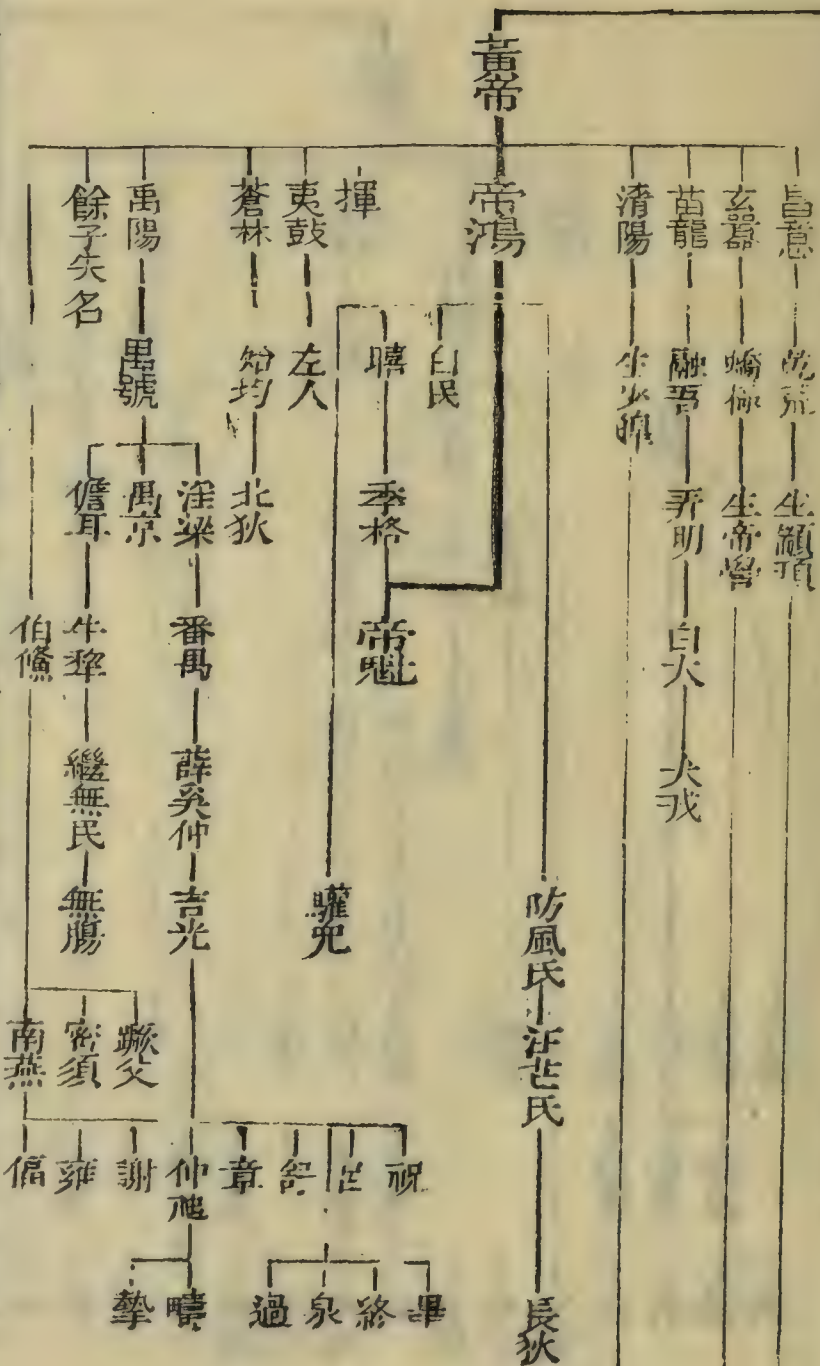 黃帝
昌意
乾荒
生顓頊
玄囂
蟜極
生帝嚳
苗龍
融吾
弄明
白犬
犬戎
清陽
生少皥
帝鴻
防風氏
汪芒氏
長狄
白民
嘻
季格
帝魁
驩兜
揮
夷鼓
左人
蒼林
始均
北狄
禹陽
禺號
淫梁
番禺
薛奚仲
吉光
禺京
儋耳
牛犂
繼無民
無腸
餘子失名
伯鯈
蹶父
密須
南燕
祝
舒
章
仲虺
謝
雍
偪
畢
終
泉
過
疇
摯